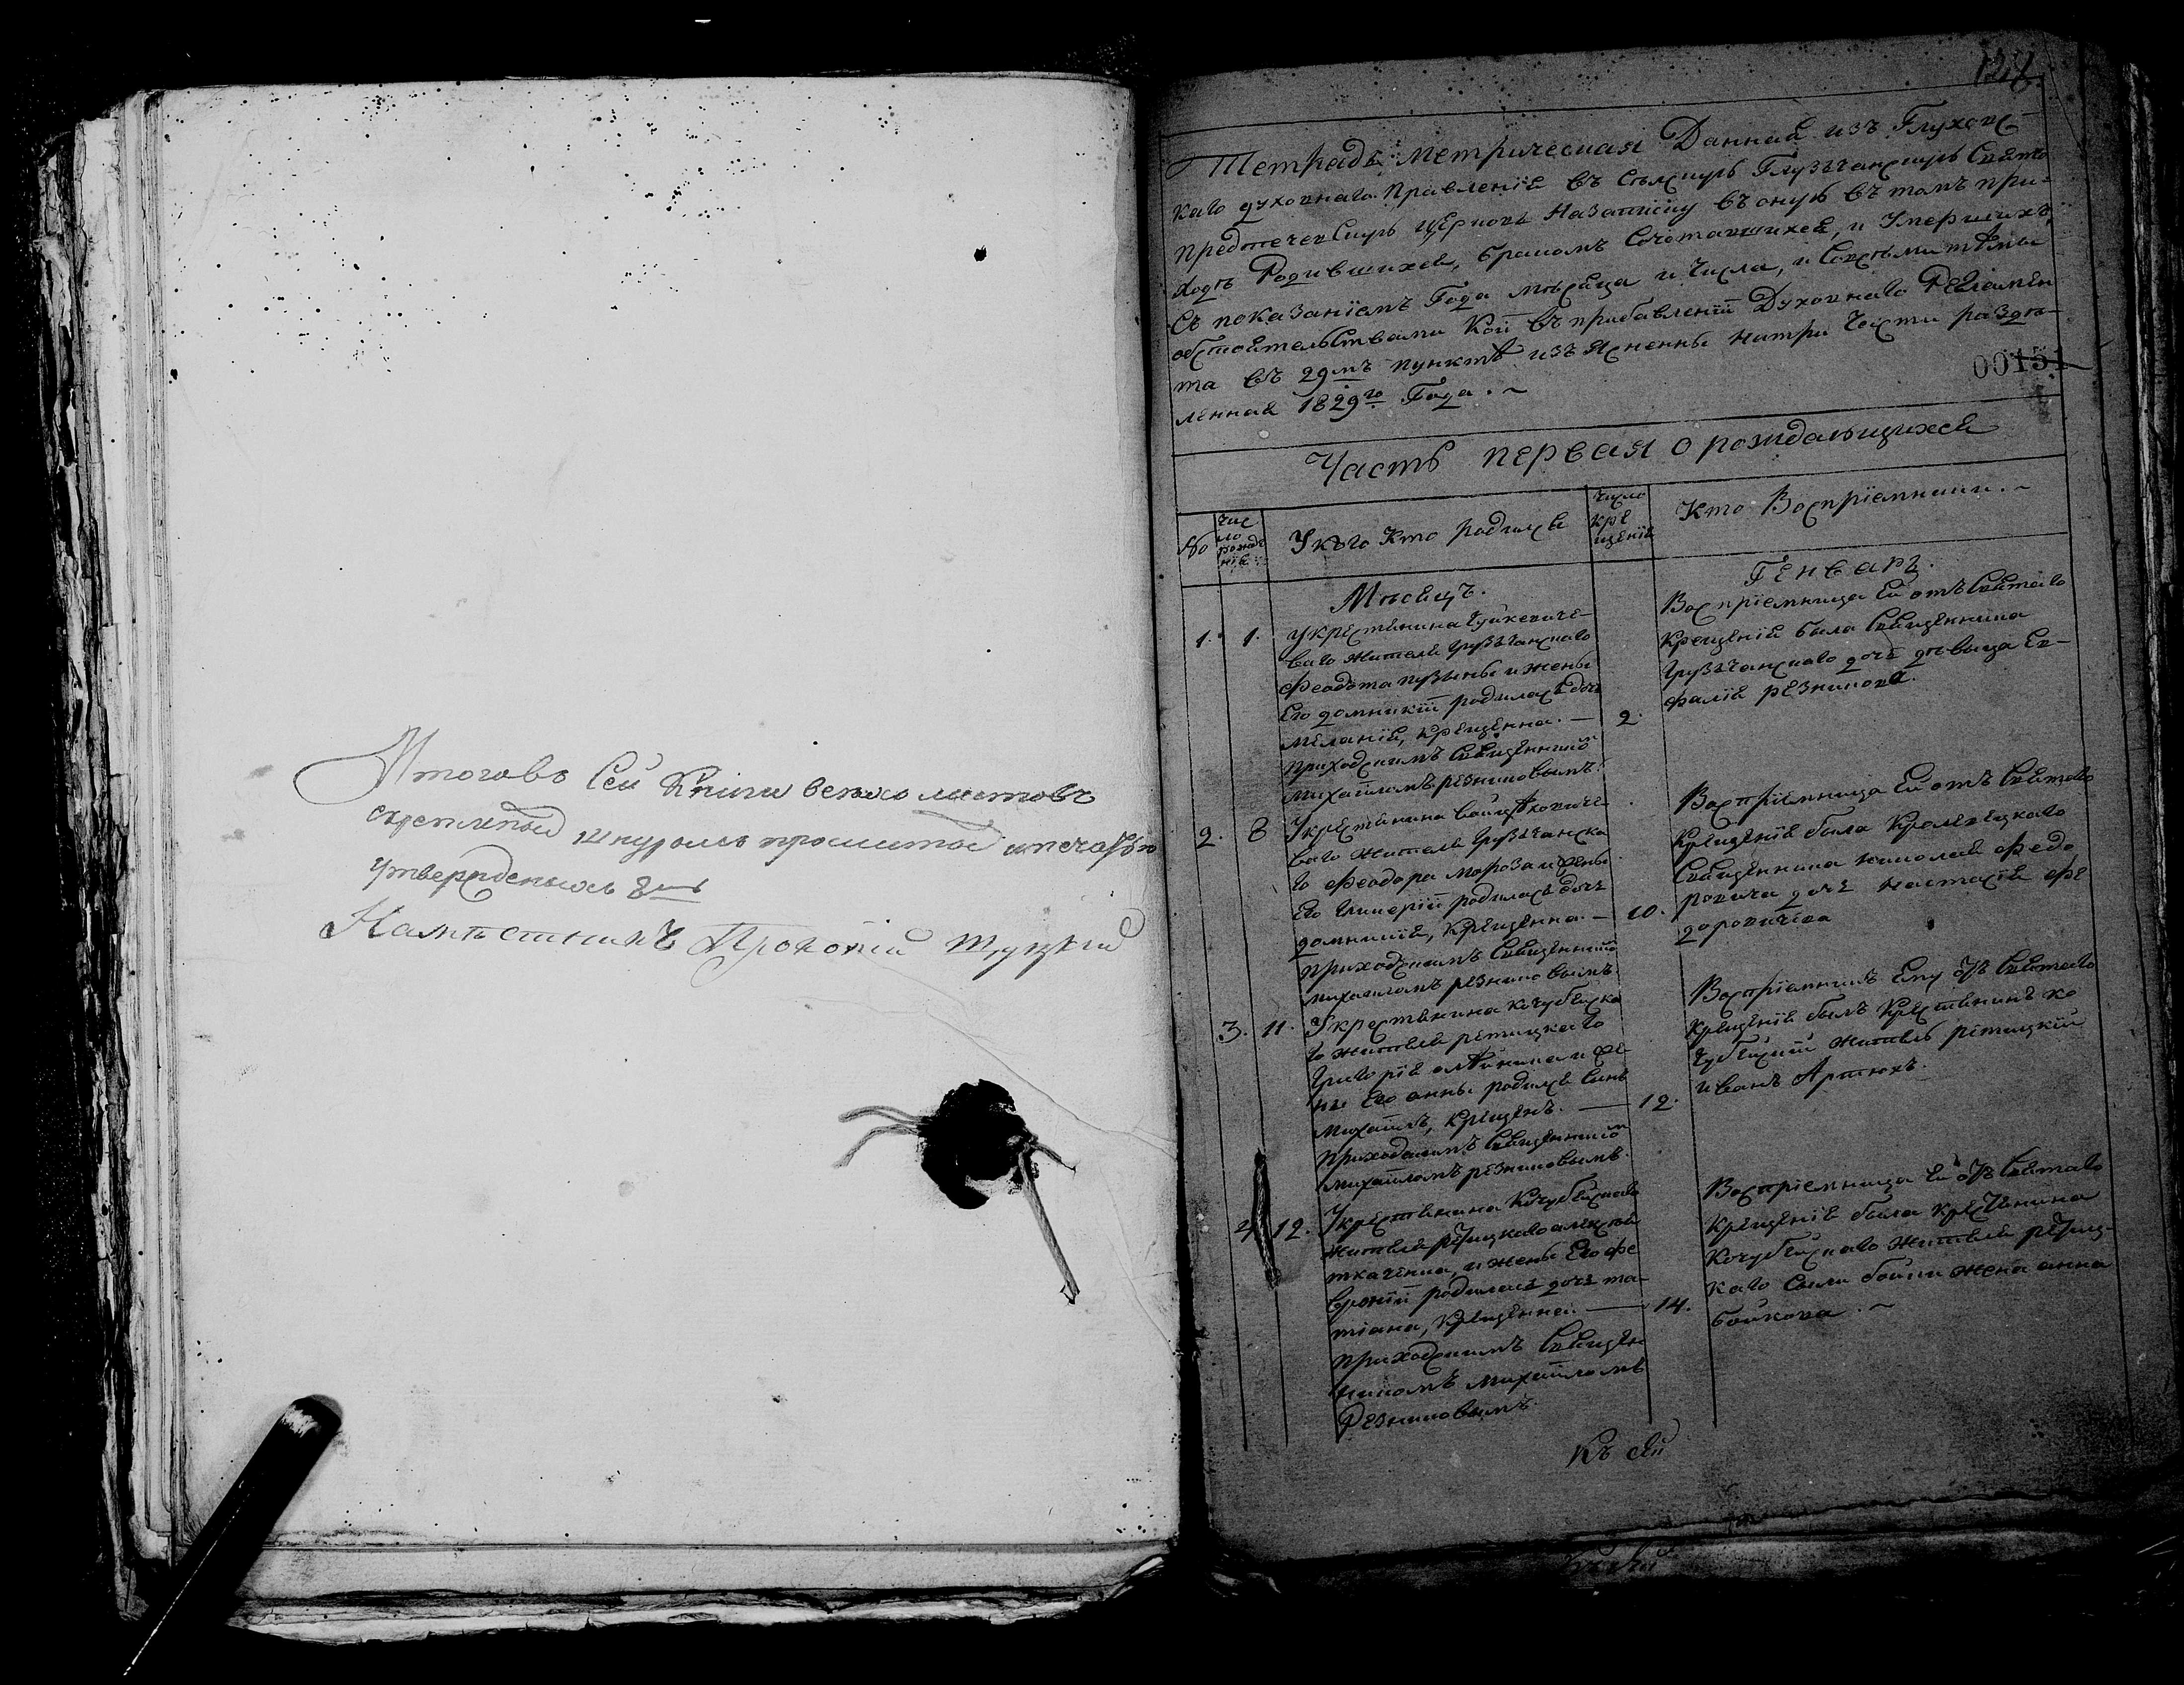 Итогово сей книги всехъ листовъ
скрепленой шнуромъ прошитой и печатью
утвержденыхъ 8мь
Намѣстникъ Прокопій
128
Тетрадь Метрическая Данная изъ Глуховс
каго духовнаго Правленія въ селскую Грузчанскую Свято
предтечевскую церковь Назаписку въ оную въ томъ при-
ходѣ Родившихся, бракомъ Сочетавшихся, и Умершихъ,
съ показаніемъ Года мѣсяца и Числа, и Совсѣми тѣми
обстоятельствами Кои въ прибавленіи Духовнаго Регламен
та въ 29мъ пунктѣ изъяснены натри Части раздѣ-
ленная 1829го Года.
00151
Часть первая о рождающихся
№
Чис
ло
рожде
нія
У кого Кто родился
Число
кре
щенія
Кто Воспріемники.
Мѣсяцъ.
Генварь.
1. 1.
У крестянина
ваго жителя Грузчанскаго
Феодота пузыны и жены
Его домникіи родилась дочь
Меланія, крещенна. — 2.
приходскимъ Священнико
Михайломъ резниковымъ.
Воспріемница Ей отъ святаго
крещенія была Священника
Грузчанскаго дочь дѣвица Ев-
фалія резникова.
2. 8
У крестянина
ваго жителя Грузчанска
го Феодора мороза и жены
Его Гликеріи родилась дочь
домникія, крещенна. — 10.
приходскимъ Священнико
михаиломъ резниковымъ.
Воспріемница Ей отъ святаго
крещенія была Кролевецкаго
Священника николая федо
ровича дочь настасія фе
доровичева
3. 11.
У крестянина кочубейска
го жителя ретицкаго
Григорія олейника и же
ны Его анны родился Сынъ
Михаилъ, крещенъ. — 12.
приходскимъ Священнико
михайломъ резниковымъ.
Воспріемникъ Ему отъ святаго
крещенія былъ крестянинъ ко
чубейскій житель ретицкій
иванъ Артюхъ.
4 12.
У крестянина Кочубейскаго
жителя ретицкаго алексѣя
ткаченка, и жены Его фе
вроніи родилась дочь та-
тіана, крещенна. — 14.
приходскимъ Священ
никомъ михайломъ
Резниковымъ.
Воспріемница Ей отъ святаго
крещенія была крестянина
Кочубейскаго жителя ретиц-
каго Савы бойки жена анна
бойкова.
Къ сей